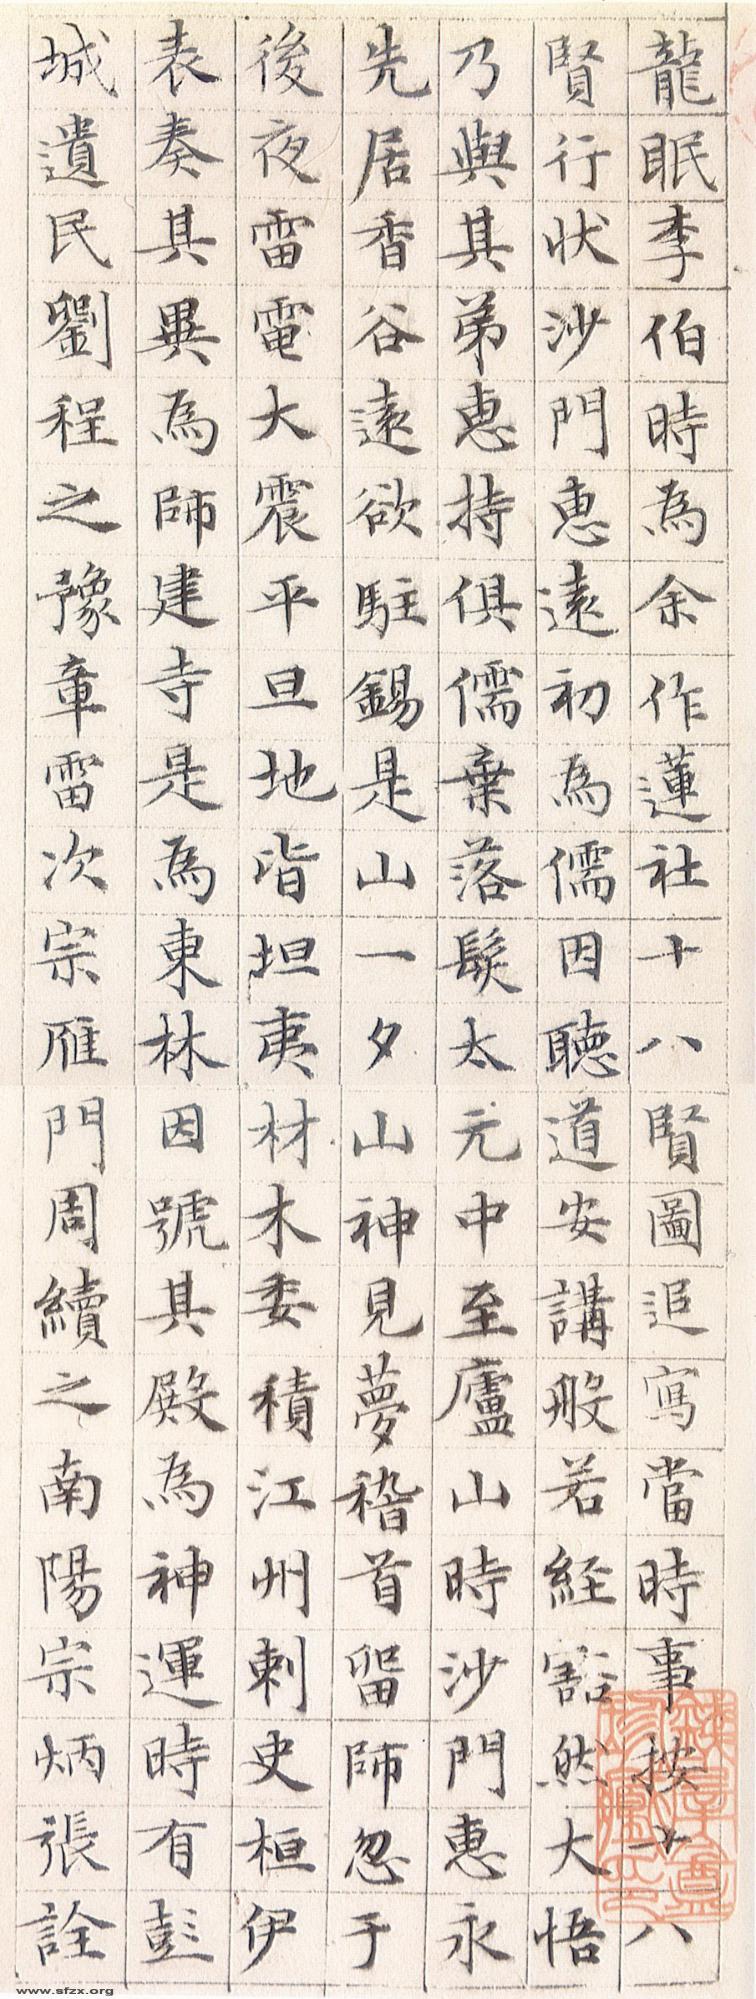 龍眠李伯時為余作蓮社十八賢圖追寫當時事按十八
賢行狀沙門惠遠初為儒因聽道安講般若經豁然大悟
乃與其弟惠持俱儒棄落髮太元中至廬山時沙門惠永
先居香谷遠欲駐錫是山一夕山神見夢稽首留師忽于
後夜雷電大震平旦地皆坦夷材木委積江州刺史桓伊
表奏其異為師建寺是為東林因號其殿為神運時有彭
城遺民劉程之豫章雷次宗雁門周續之南陽宗炳張詮
www.sfzx.org